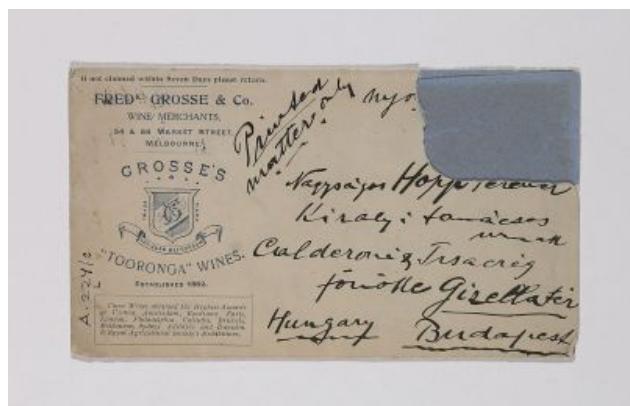 If not claimed within Seven Days please return.
FREDK. GROSSE & Co.
WINE MERCHANTS,
54 & 56 MARKET STREET,
MELBOURNE
GROSSE'S
"TOORONGA" WINES.
ESTABLISHED
Printed
matter only
nyo
Nagyságos Hopp Ferencz
Királyi tanácsos
urnak
Calderoni és Társa cég
főnöke Gizellatér
Hungary Budapest
A.